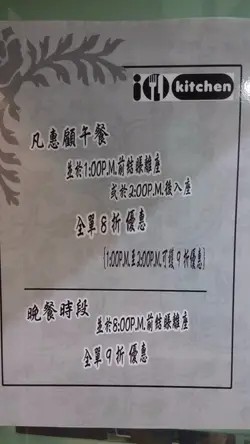 i kitchen
凡惠顧午餐
並於1:00P.M.前結賬離座
或於2:00P.M.後入座
全單8折優惠
[1:00P.M.至2:00P.M.可獲9折優惠]
晚餐時段
並於8:00P.M.前結賬離座
全單9折優惠